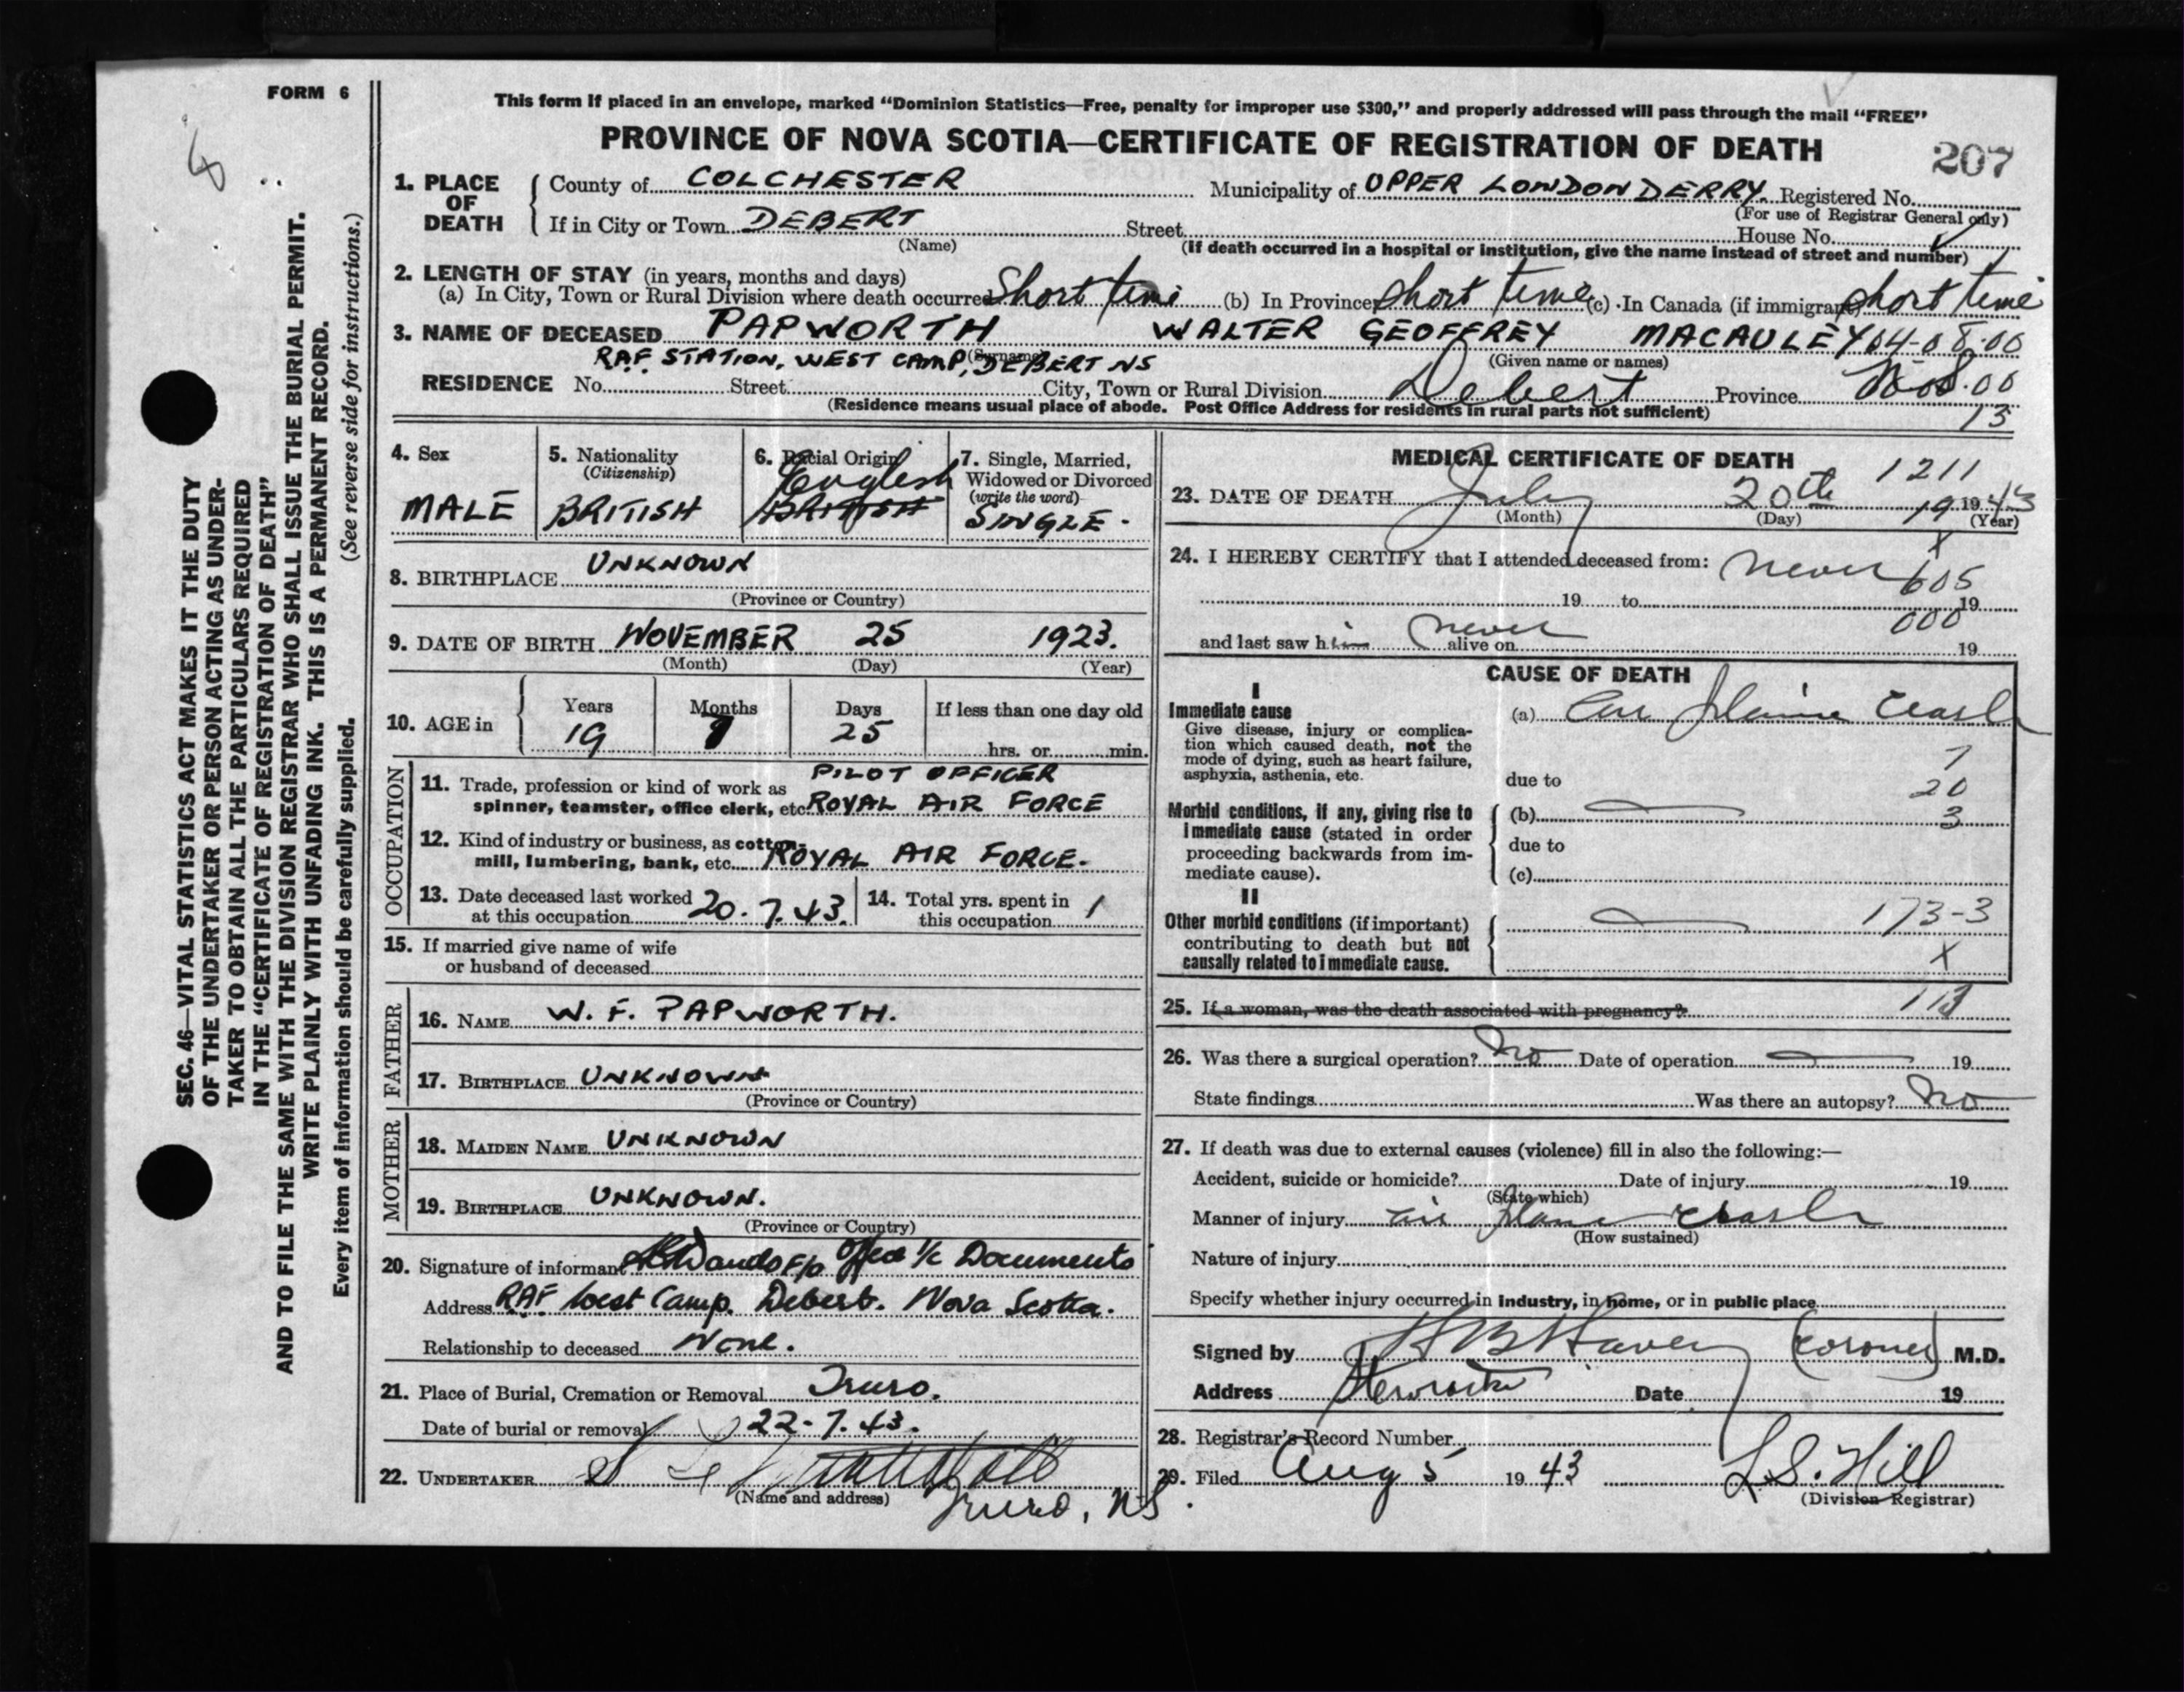 FORM 6
This form if placed in an envelope, marked "Dominion Statistics—Free, penalty for improper use $300," and properly addressed will pass through the mail "FREE"
PROVINCE OF NOVA SCOTIA—CERTIFICATE OF REGISTRATION OF DEATH
207
1. PLACE OF DEATH
County of COLCHESTER Municipality of UPPER LONDONDERRY. Registered No.
(For use of Registrar General only)
If in City or Town DEBERT Street House No.
(Name) (If death occurred in a hospital or institution, give the name instead of street and number)
2. LENGTH OF STAY (in years, months and days)
(a) In City, Town or Rural Division where death occurred Short time (b) In Province short time (c) In Canada (if immigrant) short time
3. NAME OF DECEASED PAPWORTH WALTER GEOFFREY MACAULEY 04-08-00
(Surname) (Given name or names)
RAF STATION, WEST CAMP, DEBERT NS
RESIDENCE No. Street City, Town or Rural Division Debert Province
(Residence means usual place of abode. Post Office Address for residents in rural parts not sufficient)
13
4. Sex
MALE
5. Nationality
(Citizenship)
BRITISH
6. Racial Origin
English
BRITISH
7. Single, Married, Widowed or Divorced
(write the word)
SINGLE.
8. BIRTHPLACE UNKNOWN
(Province or Country)
9. DATE OF BIRTH NOVEMBER 25 1923.
(Month) (Day) (Year)
10. AGE in
Years Months Days If less than one day old
19 25 hrs. or min.
OCCUPATION
11. Trade, profession or kind of work as PILOT OFFICER
spinner, teamster, office clerk, etc. ROYAL AIR FORCE
12. Kind of industry or business, as cotton-
mill, lumbering, bank, etc. ROYAL AIR FORCE.
13. Date deceased last worked at this occupation 20.7.43.
14. Total yrs. spent in this occupation 1
15. If married give name of wife
or husband of deceased
FATHER
16. NAME W. F. PAPWORTH.
17. BIRTHPLACE UNKNOWN
(Province or Country)
MOTHER
18. MAIDEN NAME UNKNOWN
19. BIRTHPLACE UNKNOWN.
(Province or Country)
20. Signature of informant F/O i/c Documents
Address RAF West Camp. Debert. Nova Scotia.
Relationship to deceased None.
21. Place of Burial, Cremation or Removal Truro.
Date of burial or removal 22-7.43.
22. UNDERTAKER
(Name and address)
Truro, NS.
MEDICAL CERTIFICATE OF DEATH
1211
23. DATE OF DEATH July 20th 19 1943
(Month) (Day) (Year)
X
24. I HEREBY CERTIFY that I attended deceased from: never 605
19 to 19
000
and last saw him never alive on 19
CAUSE OF DEATH
I
Immediate cause
Give disease, injury or complica-
tion which caused death, not the
mode of dying, such as heart failure,
asphyxia, asthenia, etc.
(a) Air plane crash
7
due to
20
Morbid conditions, if any, giving rise to
immediate cause (stated in order
proceeding backwards from im-
mediate cause).
(b)
3
due to
(c)
II
Other morbid conditions (if important)
contributing to death but not
causally related to immediate cause.
173-3
X
25. If a woman, was the death associated with pregnancy?
26. Was there a surgical operation? No Date of operation 19
State findings Was there an autopsy? No
27. If death was due to external causes (violence) fill in also the following:—
Accident, suicide or homicide? Date of injury 19
(State which)
Manner of injury air plane crash
(How sustained)
Nature of injury
Specify whether injury occurred in industry, in home, or in public place
Signed by (coroner) M.D.
Address Date 19
28. Registrar's Record Number
29. Filed Aug 5 1943 L.S. Hill
(Division Registrar)
SEC. 46—VITAL STATISTICS ACT MAKES IT THE DUTY
OF THE UNDERTAKER OR PERSON ACTING AS UNDER-
TAKER TO OBTAIN ALL THE PARTICULARS REQUIRED
IN THE "CERTIFICATE OF REGISTRATION OF DEATH"
AND TO FILE THE SAME WITH THE DIVISION REGISTRAR WHO SHALL ISSUE THE BURIAL PERMIT.
WRITE PLAINLY WITH UNFADING INK. THIS IS A PERMANENT RECORD.
Every item of information should be carefully supplied. (See reverse side for instructions.)